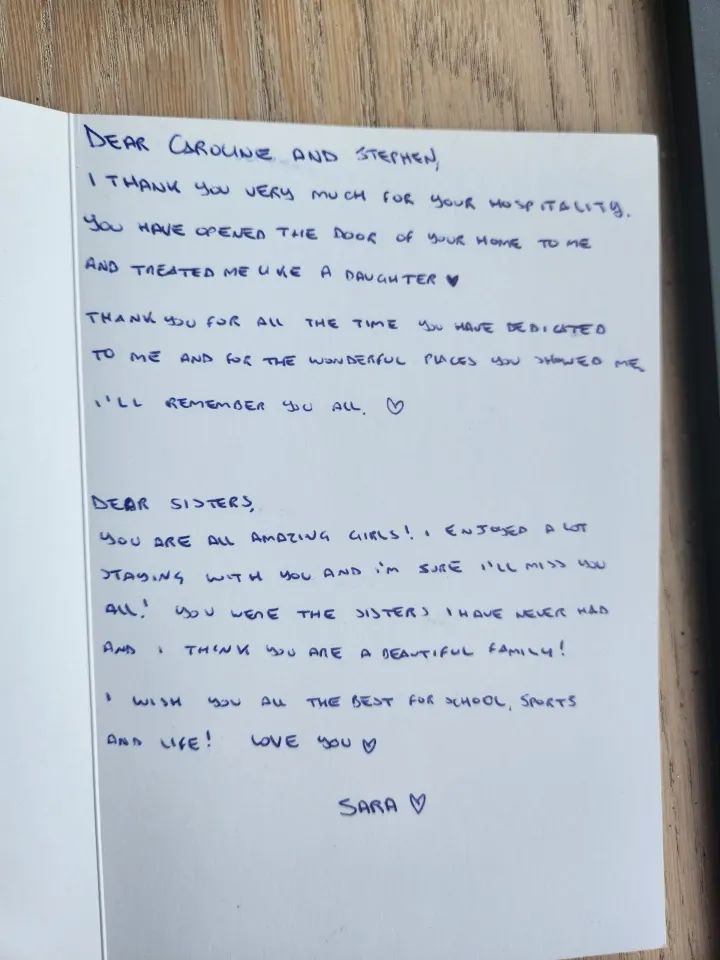 DEAR CAROLINE AND STEPHEN,
I THANK YOU VERY MUCH FOR YOUR HOSPITALITY.
YOU HAVE OPENED THE DOOR OF YOUR HOME TO ME
AND TREATED ME LIKE A DAUGHTER ♥
THANK YOU FOR ALL THE TIME YOU HAVE DEDICATED
TO ME AND FOR THE WONDERFUL PLACES YOU SHOWED ME,
I'LL REMEMBER YOU ALL. ♡
DEAR SISTERS,
YOU ARE ALL AMAZING GIRLS! I ENJOYED A LOT
STAYING WITH YOU AND I'M SURE I'LL MISS YOU
ALL! YOU WERE THE SISTERS I HAVE NEVER HAD
AND I THINK YOU ARE A BEAUTIFUL FAMILY!
I WISH YOU ALL THE BEST FOR SCHOOL, SPORTS
AND LIFE! LOVE YOU ♡
SARA ♡